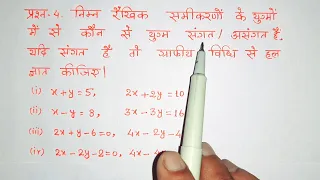 प्रश्न-4. निम्न रैखिक समीकरणों के युग्मों
में से कौन से युग्म संगत/असंगत है,
यदि संगत हैं तो ग्राफीय विधि से हल
ज्ञात कीजिए।
(i) x+y=5, 2x+2y=10
(ii) x-y=8, 3x-3y=16
(iii) 2x+y-6=0, 4x-2y-4
(iv) 2x-2y-2=0, 4x-4